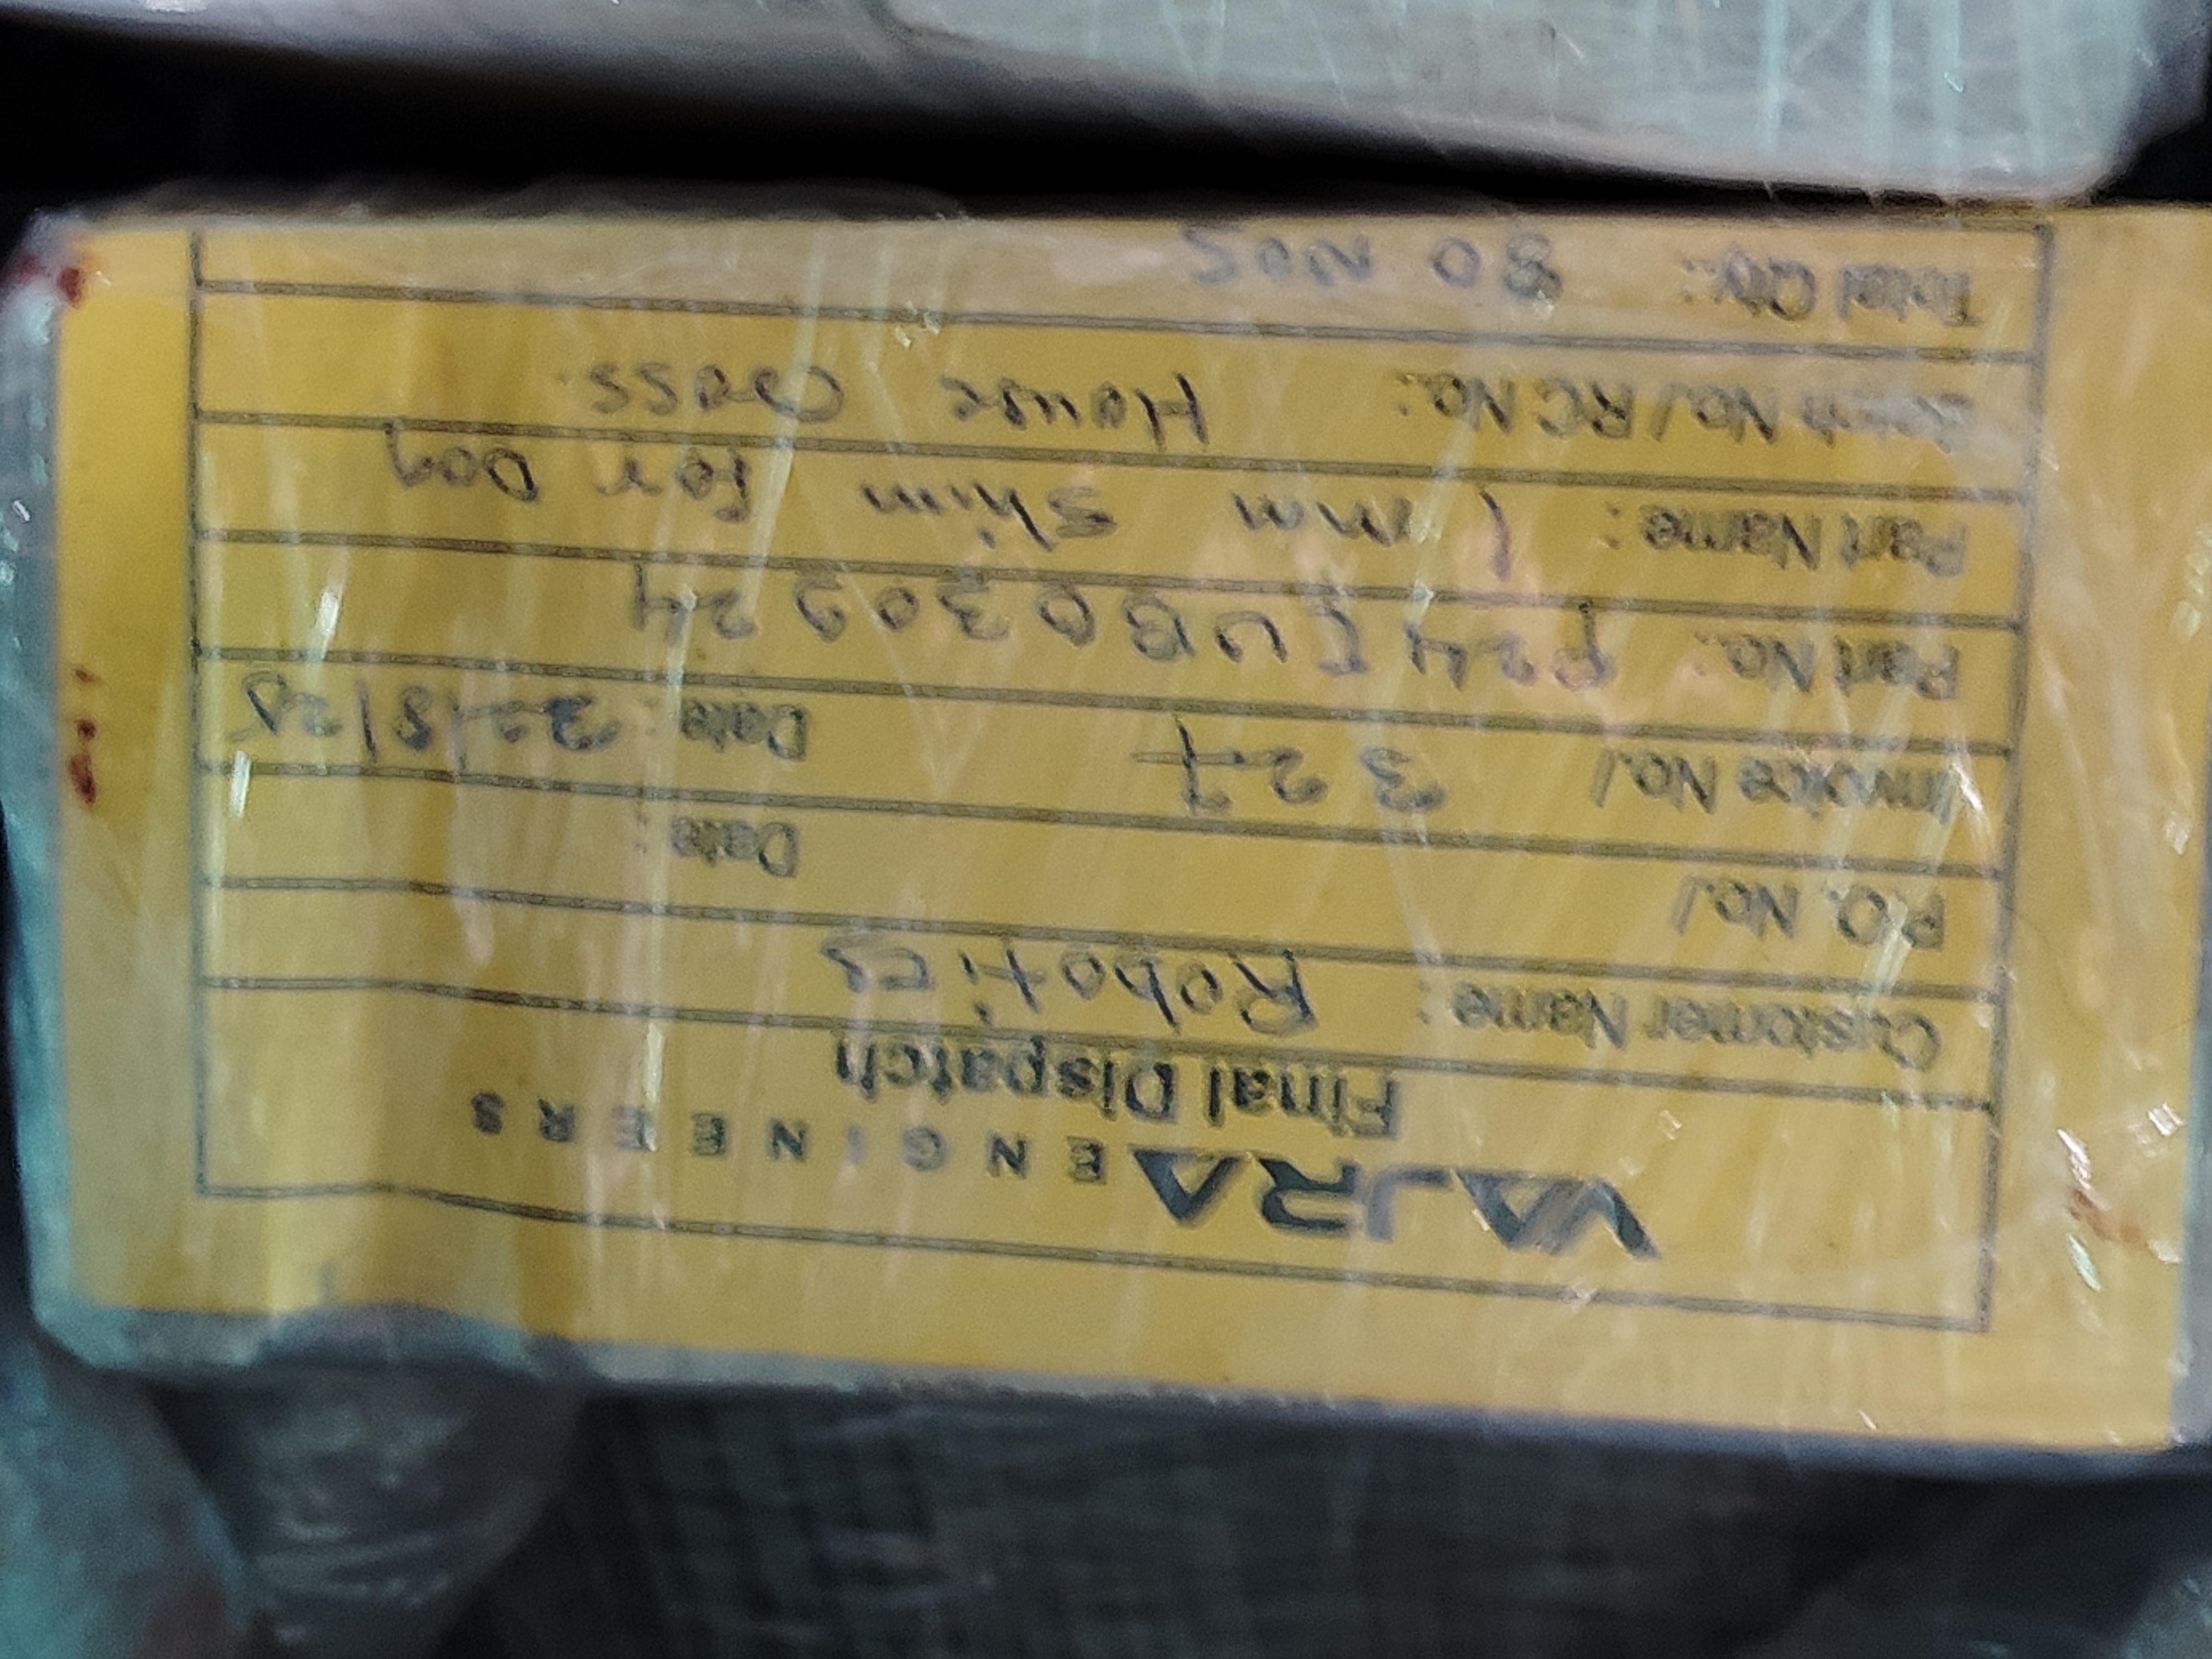 VAJRA ENGINEERS
Final Dispatch
Customer Name : Robotics
P.O. No./ Date :
Invoice No./ 327 Date : 22/8/25
Part No.: P24FUB030224
Part Name : 1 mm Shim for Dog
Batch No./ RC No.: House
Total Qty.: 80 Nos